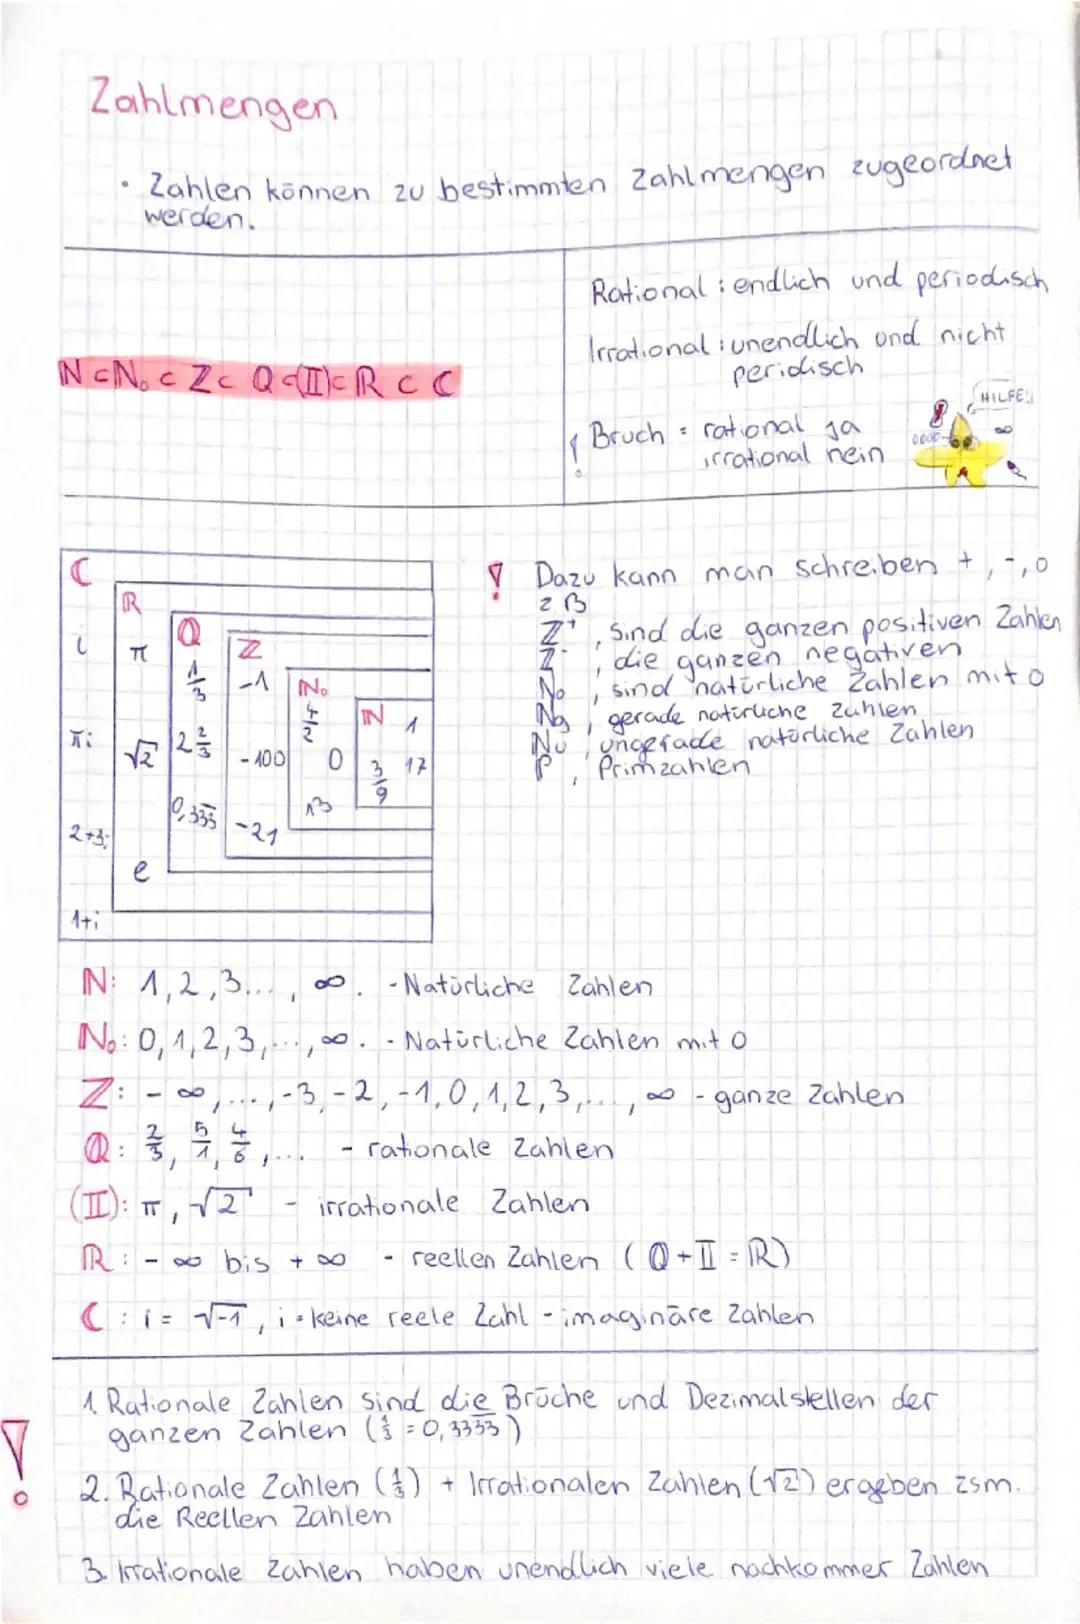 Zahlmengen
· Zahlen können zu bestimmten Zahlmengen zugeordnet
werden.
N ⊂ N₀ ⊂ Z ⊂ Q ⊂(II)⊂ R ⊂ C
Rational : endlich und periodisch
Irrational : unendlich und nicht
peridisch
! Bruch = rational ja
irrational nein
HILFE!
∞
C
R
Q
Z
N₀
N
i
π
1/3
-1
4/2
1
πi
√2
2 2/3
-100
0
3/9
17
2+3i
0,333
-21
13
e
1+i
! Dazu kann man schreiben +, -, 0
z B
Z⁺, sind die ganzen positiven Zahlen
Z⁻, die ganzen negativen
N₀, sind natürliche Zahlen mit 0
Ng, gerade natürliche zahlen
Nu, ungerade natürliche Zahlen
P, Primzahlen
N: 1, 2, 3..., ∞. - Natürliche Zahlen
N₀: 0, 1, 2, 3, ..., ∞. - Natürliche Zahlen mit 0
Z: - ∞, ..., -3, -2, -1, 0, 1, 2, 3, ..., ∞ - ganze Zahlen
Q: 2/3, 5/1, 4/6, ... - rationale Zahlen
(II): π, √2 - irrationale Zahlen
R: - ∞ bis + ∞ - reellen Zahlen (Q + II = R)
C: i = √-1, i = keine reele Zahl - imaginäre Zahlen
1. Rationale Zahlen sind die Brüche und Dezimalstellen der
ganzen Zahlen (1/3 = 0,3333̅)
2. Rationale Zahlen (1/3) + Irrationalen Zahlen (√2) ergeben zsm.
die Reellen Zahlen
!
3. Irrationale Zahlen haben unendlich viele nachkommer Zahlen